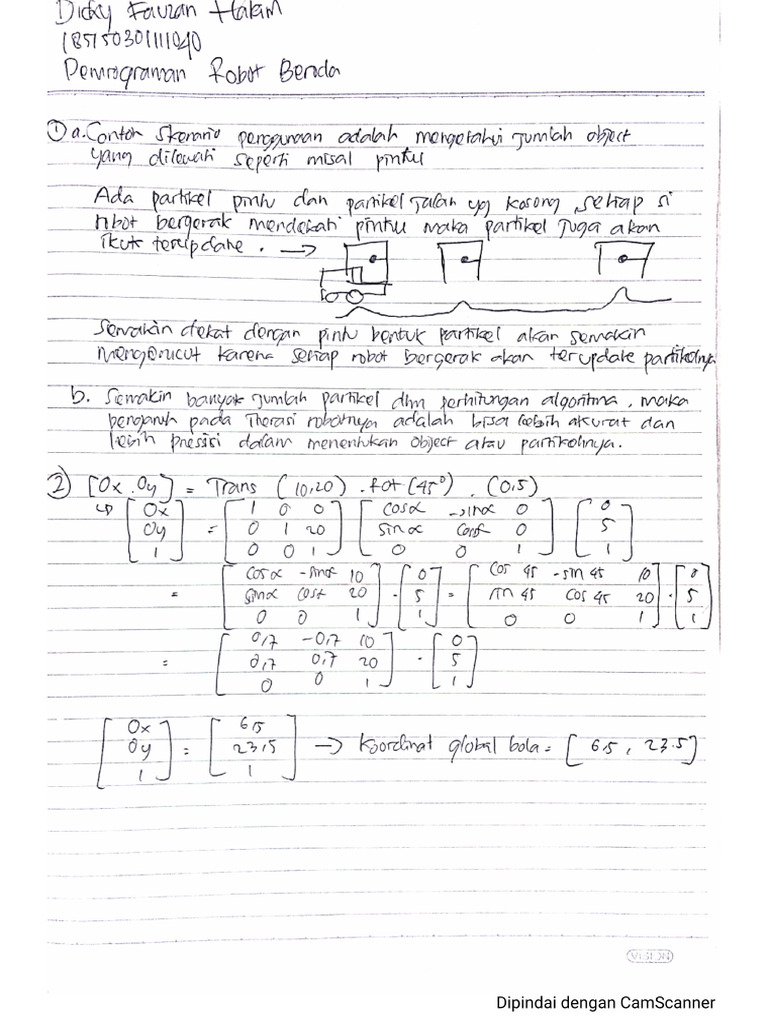 Dicky Fauzan Hakim
185150301111040
Pemrograman Robot Beroda
① a. Contoh skenario penggunaan adalah mengetahui jumlah object
yang dilewati seperti misal pintu
Ada partikel pintu dan partikel jalan yg kosong, setiap si
robot bergerak mendekati pintu maka partikel juga akan
ikut terupdate. →
Semakin dekat dengan pintu bentuk partikel akan semakin
mengerucut karena setiap robot bergerak akan terupdate partikelnya
b. Semakin banyak jumlah partikel dlm perhitungan algoritma, maka
pengaruh pada iterasi robotnya adalah bisa lebih akurat dan
lebih presisi dalam menentukan object atau partikelnya.
② [Ox, Oy] = Trans (10,20) . rot (45°) . (0,5)
↳ [Ox Oy 1] = [1 0 0; 0 1 20; 0 0 1] [cosα -sinα 0; sinα cosα 0; 0 0 1] [0 5 1]
= [cosα -sinα 10; sinα cosα 20; 0 0 1] . [0 5 1] = [cos 45 -sin 45 10; sin 45 cos 45 20; 0 0 1] . [0 5 1]
= [0,7 -0,7 10; 0,7 0,7 20; 0 0 1] . [0 5 1]
[Ox Oy 1] = [6,5 23,5 1] → Koordinat global bola = [6.5, 23.5]
VISION
Dipindai dengan CamScanner